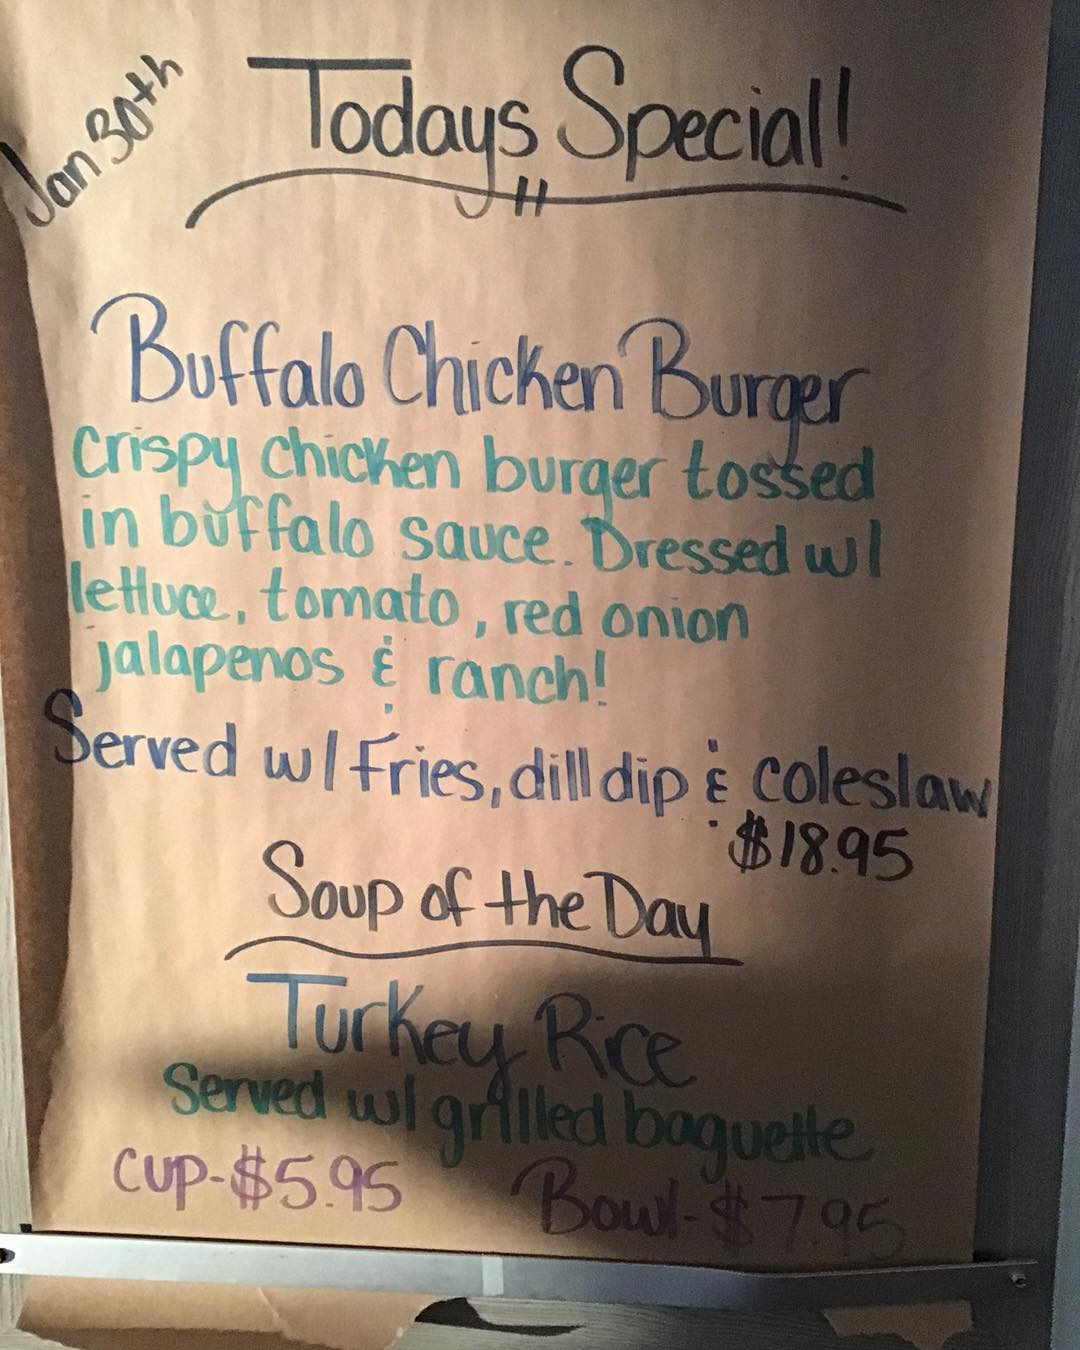 Jan 30th
Todays Special!
Buffalo Chicken Burger
Crispy chicken burger tossed
in buffalo sauce. Dressed w/
lettuce, tomato, red onion
jalapenos & ranch!
Served w/ fries, dill dip & coleslaw
$18.95
Soup of the Day
Turkey Rice
Served w/ grilled baguette
Cup-$5.95 Bowl-$7.95